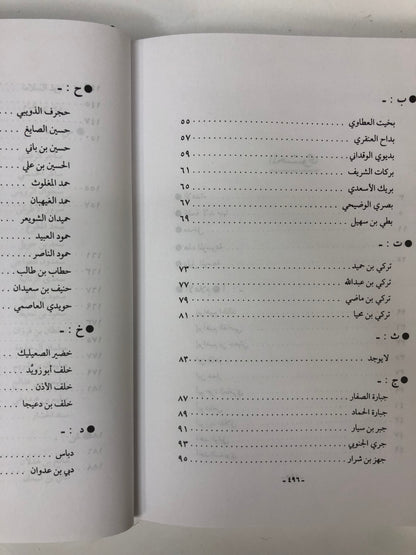 ● ب : -
بخيت العطاوي ........ ٥٥
بداح العنقري ........ ٥٧
بديوي الوقداني ........ ٥٩
بركات الشريف ........ ٦١
بريك الأسعدي ........ ٦٥
بصري الوضيحي ........ ٦٧
بطي بن سهيل ........ ٦٩
● ت : -
تركي بن حميد ........ ٧٣
تركي بن عبدالله ........ ٧٧
تركي بن ماضي ........ ٧٩
تركي بن محيا ........ ٨١
● ث : -
لا يوجد ........ ٨٣
● ج : -
جبارة الصفار ........ ٨٧
جبارة الحماد ........ ٨٩
جبر بن سيار ........ ٩١
جري الجنوبي ........ ٩٣
جهز بن شرار ........ ٩٥
- ٤٩٦ -
● ح : -
حجرف الذويبي ........
حسين الصايغ ........
حسين بن باني ........
الحسين بن علي ........
حمد المغلوث ........
حمد الغيهبان ........
حميدان الشويعر ........
حمود العبيد ........
حمود الناصر ........
حطاب بن طالب ........
حنيف بن سعيدان ........
حويدي العاصمي ........
● خ : -
خضير الصعيليك ........
خلف أبو زويد ........
خلف الأذن ........
خلف بن دعيجا ........
● د : -
دباس ........
دبي بن عدوان ........